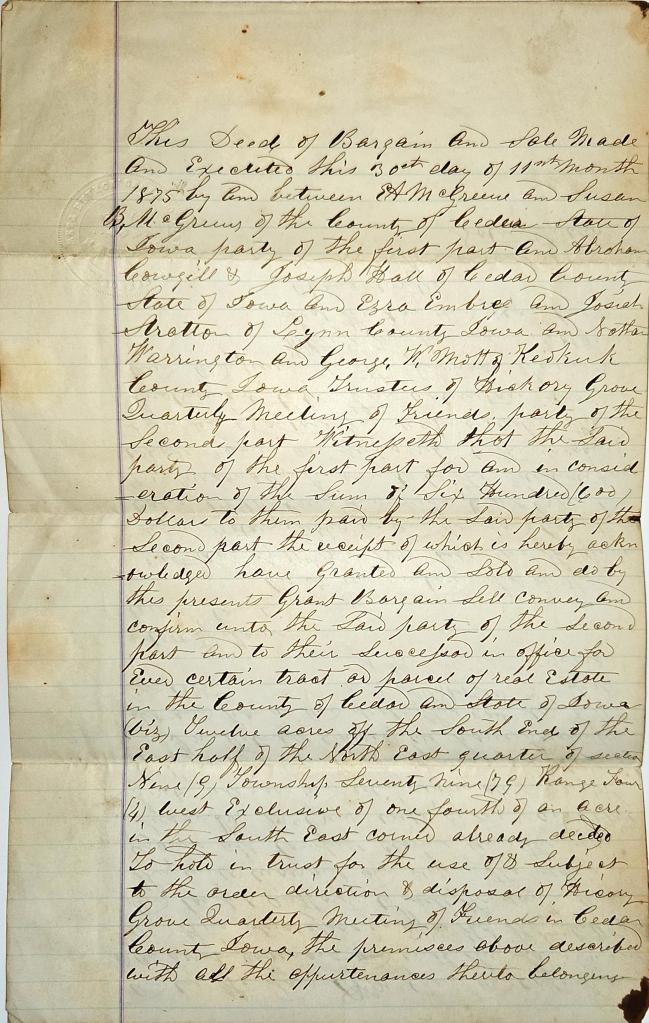 This Deed of Bargain and Sale Made
and Executed this 30th day of 11th Month
1875 by and between E A McGrewe and Susan
B, McGrewe of the County of Cedar State of
Iowa party of the first part and Abraham
Cowgill & Joseph Hall of Cedar County
State of Iowa and Ezra Embree and Josiah
Stratton of Lynn County Iowa and Nathan
Warrington and George, W, Mott of Keokuk
County, Iowa Trustees of Hickory Grove
Quarterly Meeting of Friends, party of the
Second part Witnesseth that the Said
party of the first part for and in consid
=eration of the Sum of Six Hundred (600)
Dollars to them paid by the Said party of the
Second part the receipt of which is hereby ackn
=owledged have Granted and Sold and do by
this presents Grant Bargain Sell convey and
confirm unto the Said party of the Second
part and to their Successor in office for
Ever certain tract or parcel of real Estate
in the County of Cedar and State of Iowa
(viz) Twelve acres off the South End of the
East half of the North East quarter of section
Nine (9) Township Seventy Nine (79) Range Four
(4) West Exclusive of one fourth of an acre
in the South East corner already deeded
To hold in trust for the use of & Subject
to the order direction & disposal of Hicory
Grove Quarterly Meeting of Friends in Cedar
County Iowa, the premisces above described
with all the appurtenances thereto belonging